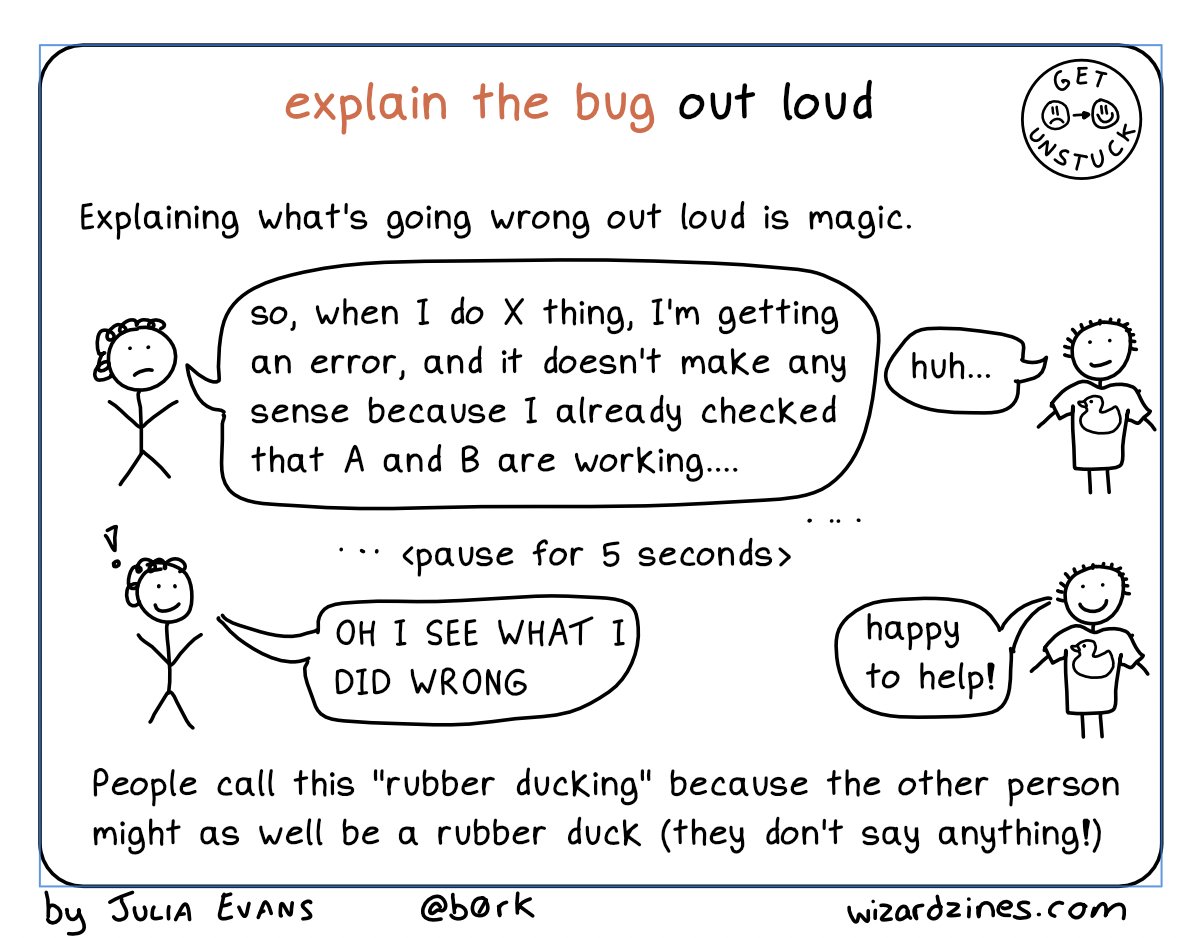 explain the bug out loud
GET
UNSTUCK
Explaining what's going wrong out loud is magic.
so, when I do X thing, I'm getting
an error, and it doesn't make any
sense because I already checked
that A and B are working....
huh...
... <pause for 5 seconds> ....
!
OH I SEE WHAT I
DID WRONG
happy
to help!
People call this "rubber ducking" because the other person
might as well be a rubber duck (they don't say anything!)
by JULIA EVANS
@b0rk
wizardzines.com